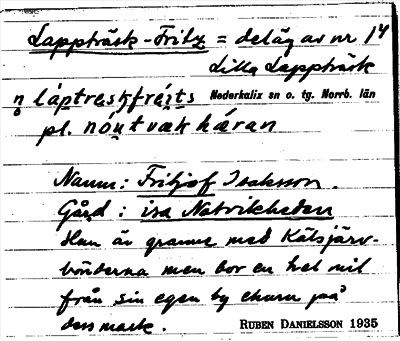 Lappträsk-Fritz = delägare nr 14
Lilla Lappträsk
Nederkalix sn o. tg. Norrb. län
pl.
Namn: Fritjof Isaksson.
Gård: isa Natvikheden
Han är granne med Kälsjärv-
bönderna men bor en hel mil
från sin egen by ehuru på
dess mark.
RUBEN DANIELSSON 1935